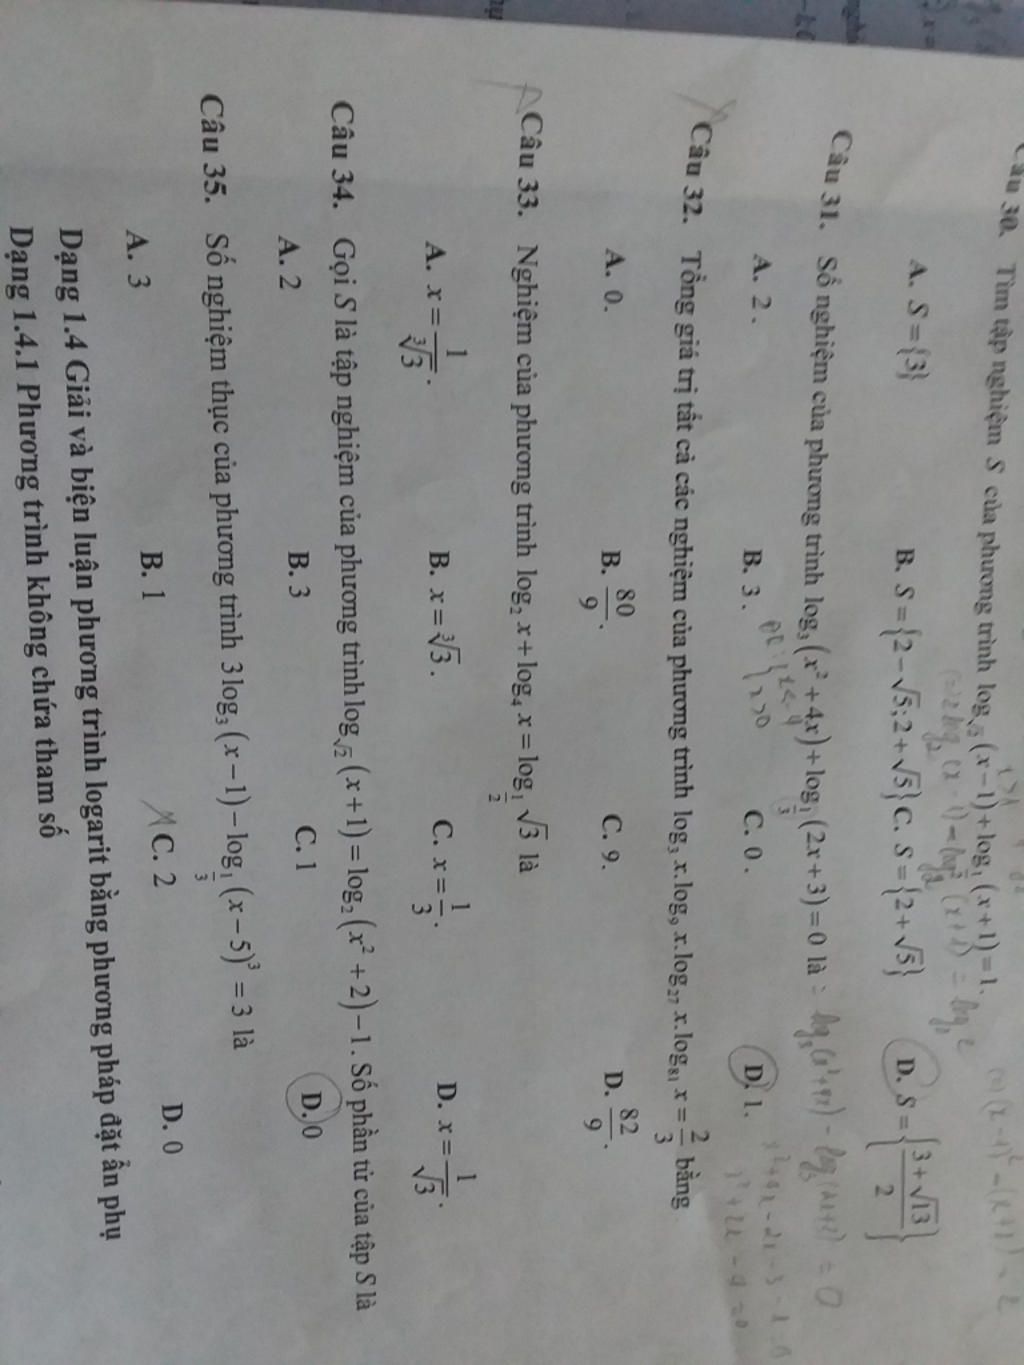 Câu 30. Tìm tập nghiệm S của phương trình log_{√2}(x−1)+log_{1/2}(x+1)=1.
A. S={3} B. S={2−√5;2+√5} C. S={2+√5} D. S={(3+√13)/2}
Câu 31. Số nghiệm của phương trình log_3(x²+4x)+log_{1/3}(2x+3)=0 là
A. 2. B. 3. C. 0. D. 1.
Câu 32. Tổng giá trị tất cả các nghiệm của phương trình log_3 x.log_9 x.log_27 x.log_81 x = 2/3 bằng
A. 0. B. 80/9. C. 9. D. 82/9.
Câu 33. Nghiệm của phương trình log_2 x + log_4 x = log_{1/2} √3 là
A. x = 1/∛3. B. x = ∛3. C. x = 1/3. D. x = 1/√3.
Câu 34. Gọi S là tập nghiệm của phương trình log_{√2}(x+1)=log_2(x²+2)−1. Số phần tử của tập S là
A. 2 B. 3 C. 1 D. 0
Câu 35. Số nghiệm thực của phương trình 3log_3(x−1)−log_{1/3}(x−5)³=3 là
A. 3 B. 1 C. 2 D. 0
Dạng 1.4 Giải và biện luận phương trình logarit bằng phương pháp đặt ẩn phụ
Dạng 1.4.1 Phương trình không chứa tham số